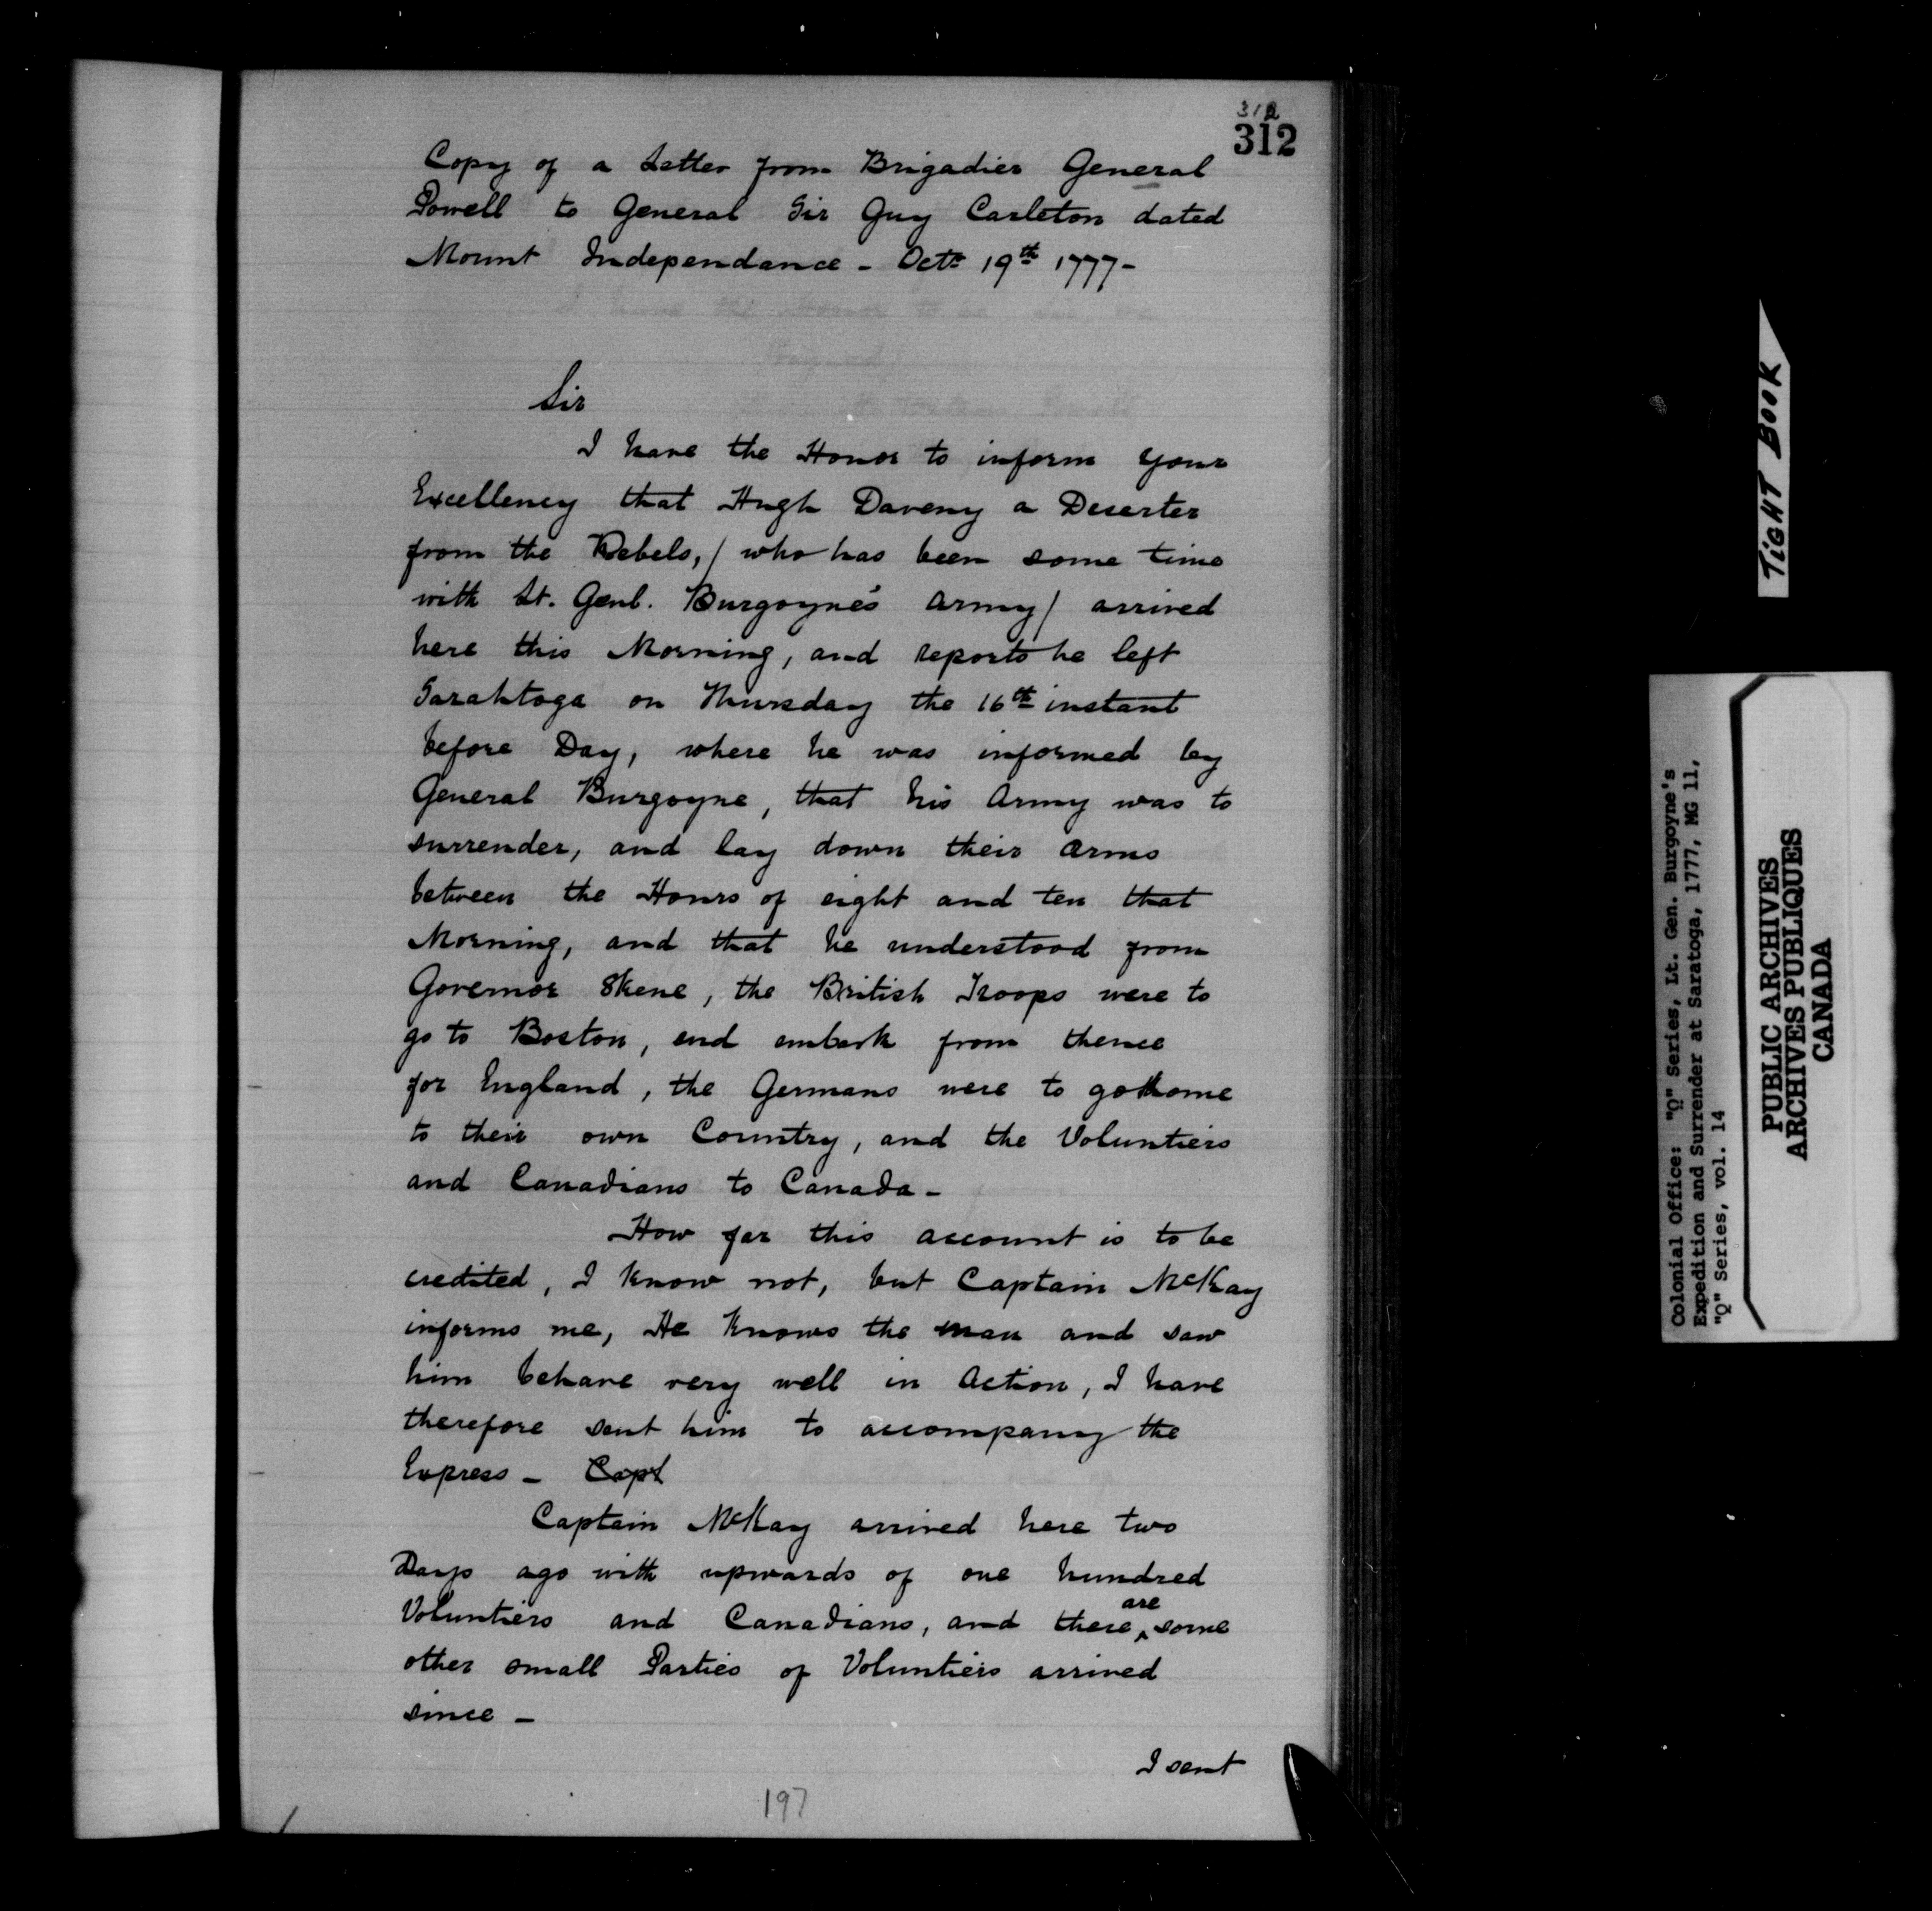 312
312
Copy of a Letter from Brigadier General
Powell to General Sir Guy Carleton dated
Mount Independance - Octr 19th 1777-
Sir
I have the Honor to inform your
Excellency that Hugh Daveny a Deserter
from the Rebels, / who has been some time
with Lt. Genl. Burgoyne's Army / arrived
here this Morning, and reports he left
Sarahtoga on Thursday the 16th instant
before Day, where he was informed by
General Burgoyne, that his Army was to
surrender, and lay down their Arms
between the Hours of eight and ten that
Morning, and that he understood from
Governor Skene, the British Troops were to
go to Boston, and embark from thence
for England, the Germans were to go home
to their own Country, and the Voluntiers
and Canadians to Canada -
How far this account is to be
credited, I know not, but Captain McKay
informs me, He knows the man and saw
him behave very well in Action, I have
therefore sent him to accompany the
Express - Capt
Captain McKay arrived here two
Days ago with upwards of one hundred
Voluntiers and Canadians, and there are some
other small Parties of Voluntiers arrived
since -
I sent
197
TIGHT BOOK
Colonial Office: "Q" Series, Lt. Gen. Burgoyne's
Expedition and Surrender at Saratoga, 1777, MG 11,
"Q" Series, vol. 14
PUBLIC ARCHIVES
ARCHIVES PUBLIQUES
CANADA